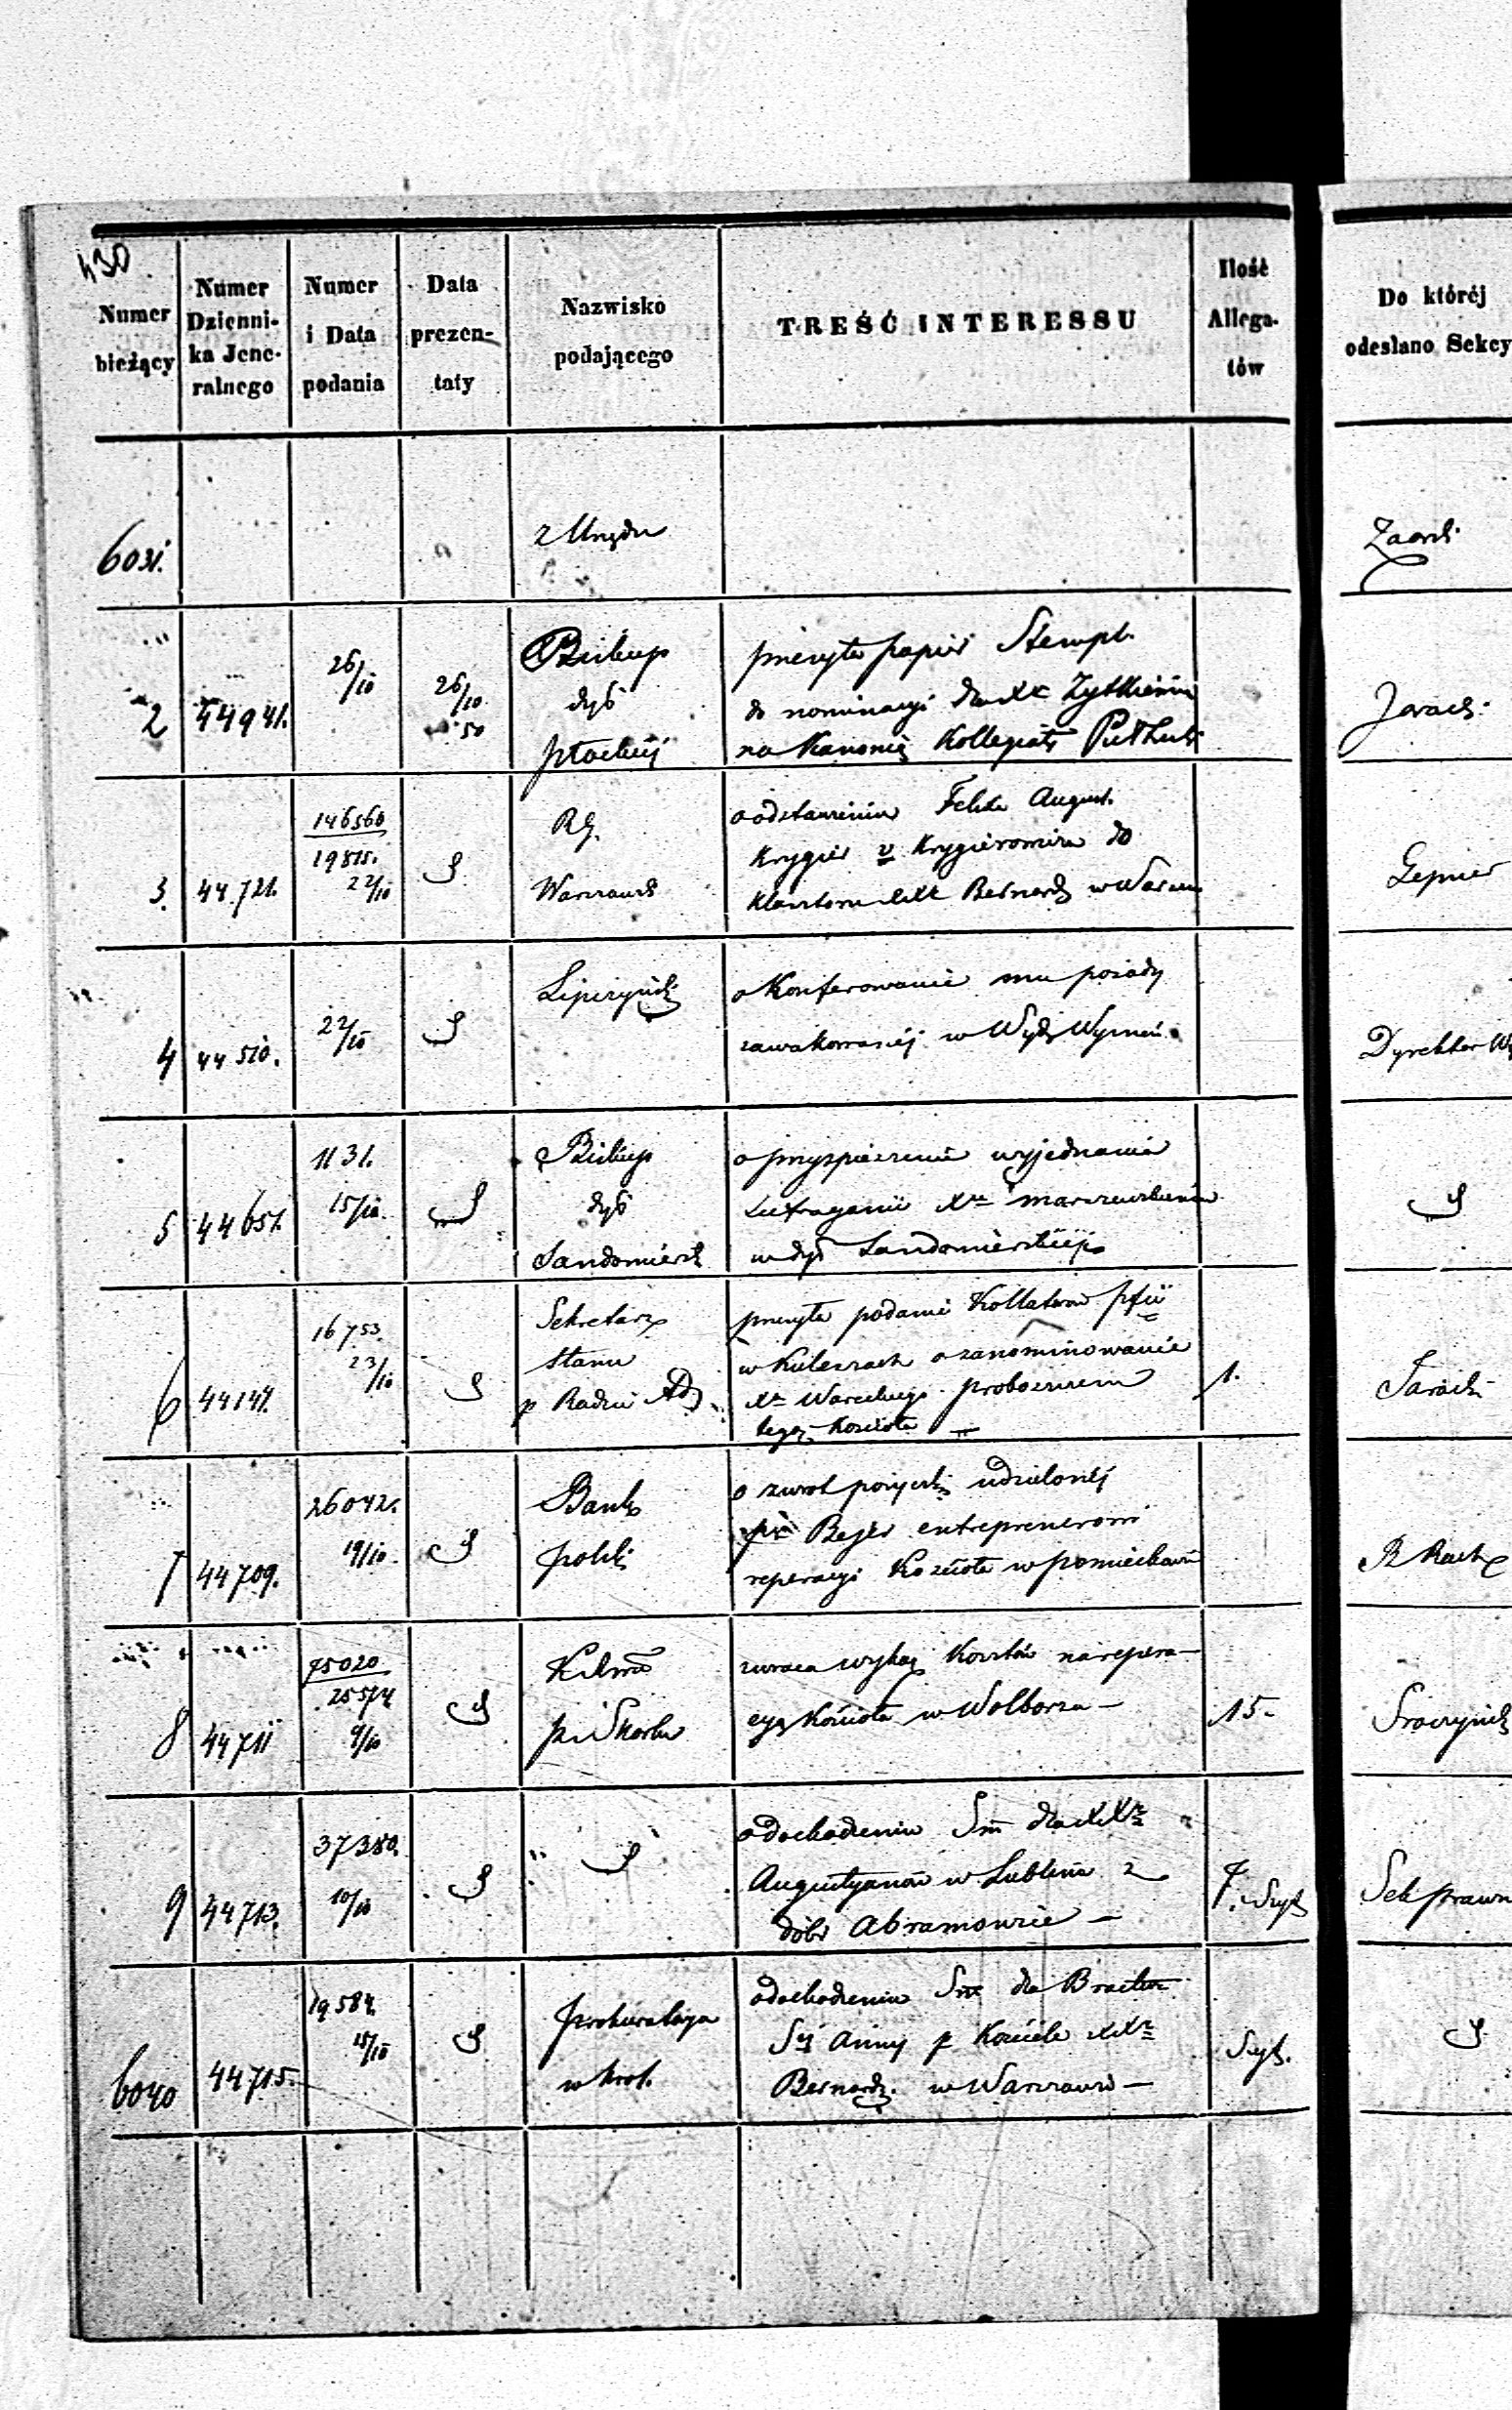 430
Numer
bieżący
Numer
Dzienni-
ka Jene-
ralnego
Numer
i Data
podania
Data
prezen-
taty
Nazwisko
podającego
TREŚĆ INTERESSU
Ilość
Allega-
tów
Do któréj
odesłano Sekcy
6031.
z Urzędu
2
44941.
26/10
26/10
50
Biskup
dyć
płockiej
przesyła papier Stempl.
do nominacyi dla Xa
na Kanonię Kollegiaty Pułtuski
3.
44.721.
146560
19815.
22/10
RG.
Warszaws
o odstawieniu Felixa August.
Krygier v Krygierowicza do
Klasztoru XX Bernard w Warsza
4
44510.
22/10
Lipczyński
o Konferowanie mu posady
zawakowanéj w Wydz Wyznań
Dyrektor Wy
5
44651.
1131.
15/10.
Biskup
dyć
Sandomiersk
o przyspieszenie wyjednania
Suffraganii Xu
w dyć Sandomierskiej
6
44141.
16753.
23/10
Sekretarz
Stanu
p Radzie Ad
przesyła podanie Kollatorów pfii
w Kuleszach o zanominowanie
Xa Wareckiego proboszczem
tegoż Kościoła —
1.
7
44709.
26042.
19/10.
Bank
polski
o zwrot pożyczki udzielonéj
Bejer entreprenerowi
reperacyi Kościoła w pomiechowie
8
44711
75020
25574
9/10
p i Skarbu
zwraca wykaz Kosztów na repera—
cyą Kościoła w Wolborzu —
15.
9
44713.
37380.
10/10
o dochodzeniu Sm dla XXr
Augustyanów w Lublinie z
dóbr Abramowice —
7.
Sek prawn
6040
44715.
19584.
15/10
prokuratorya
w Król.
o dochodzeniu Sm dla Bractw
Sej Anny p Kościele XXr
Bernardz. w Warszawie —